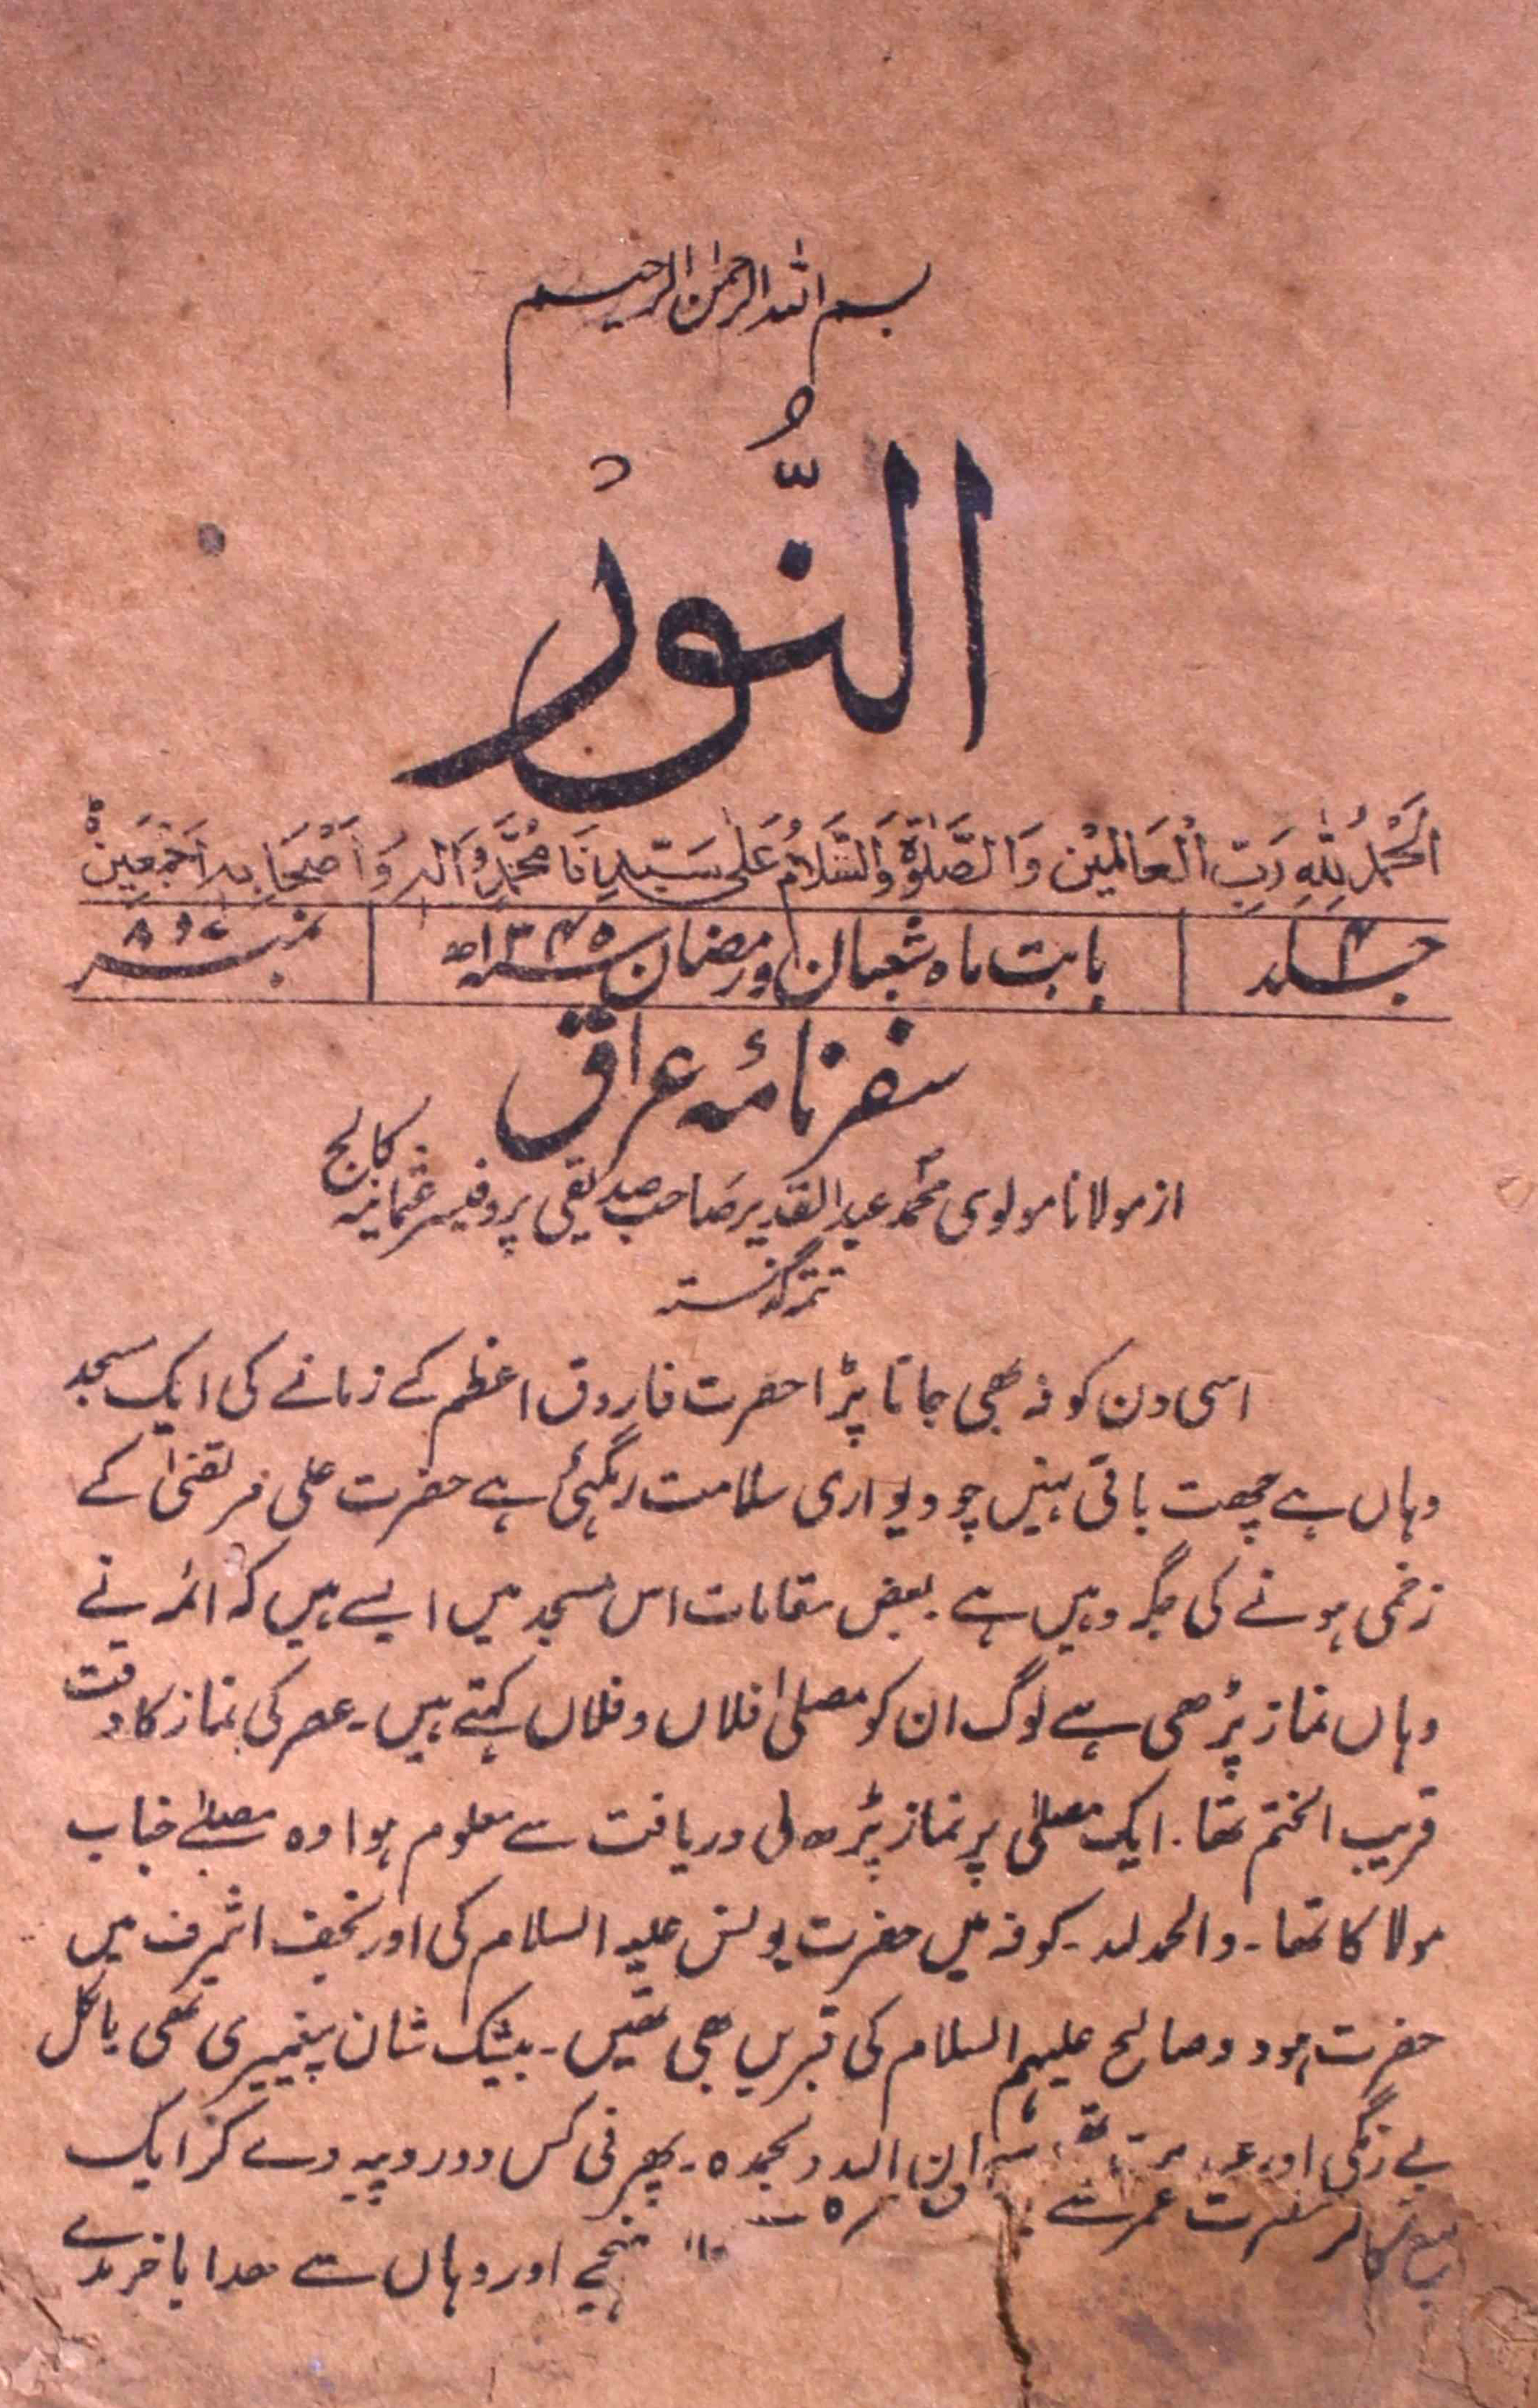 بسم الله الرحمن الرحیم
النُّوْر
اَلْحَمْدُ لِلّٰہِ رَبِّ الْعَالَمِیْن وَالصَّلٰوۃُ وَالسَّلَامُ عَلٰی سَیِّدِنَا مُحَمَّدٍ وَاٰلِہٖ وَاَصْحَابِہٖ اَجْمَعِیْنَ
جلد ۴ بابت ماہ شعبان و رمضان سنہ ۱۳۴۵ھ نمبر ۷ و ۸
سفرنامۂ عراق
از مولانا مولوی محمد عبدالقدیر صاحب صدیقی پروفیسر عثمانیہ کالج
تتمہ گذشتہ
اسی دن کوفہ بھی جانا پڑا حضرت فاروق اعظم کے زمانے کی ایک مسجد
وہاں ہے چھت باقی نہیں چو دیواری سلامت رہگئی ہے حضرت علی مرتضیٰ کے
زخمی ہونے کی جگہ وہیں ہے۔ بعض مقامات اس مسجد میں ایسے ہیں کہ ائمہ نے
وہاں نماز پڑھی ہے لوگ ان کو مصلیٰ فلاں و فلاں کہتے ہیں۔ عصر کی نماز کا وقت
قریب الختم تھا۔ ایک مصلیٰ پر نماز پڑھ لی دریافت سے معلوم ہوا وہ مصلےٰ جناب
مولا کا تھا۔ والحمد للہ۔ کوفہ میں حضرت یونس علیہ السلام کی اور نجف اشرف میں
حضرت ہود و صالح علیہم السلام کی قبریں بھی تھیں۔ بیشک شان پیغمبری تھی بالکل
بے رنگی اور بحمدہ۔ پھر فی کس دو روپیہ دے کر ایک
پہنچے اور وہاں سے